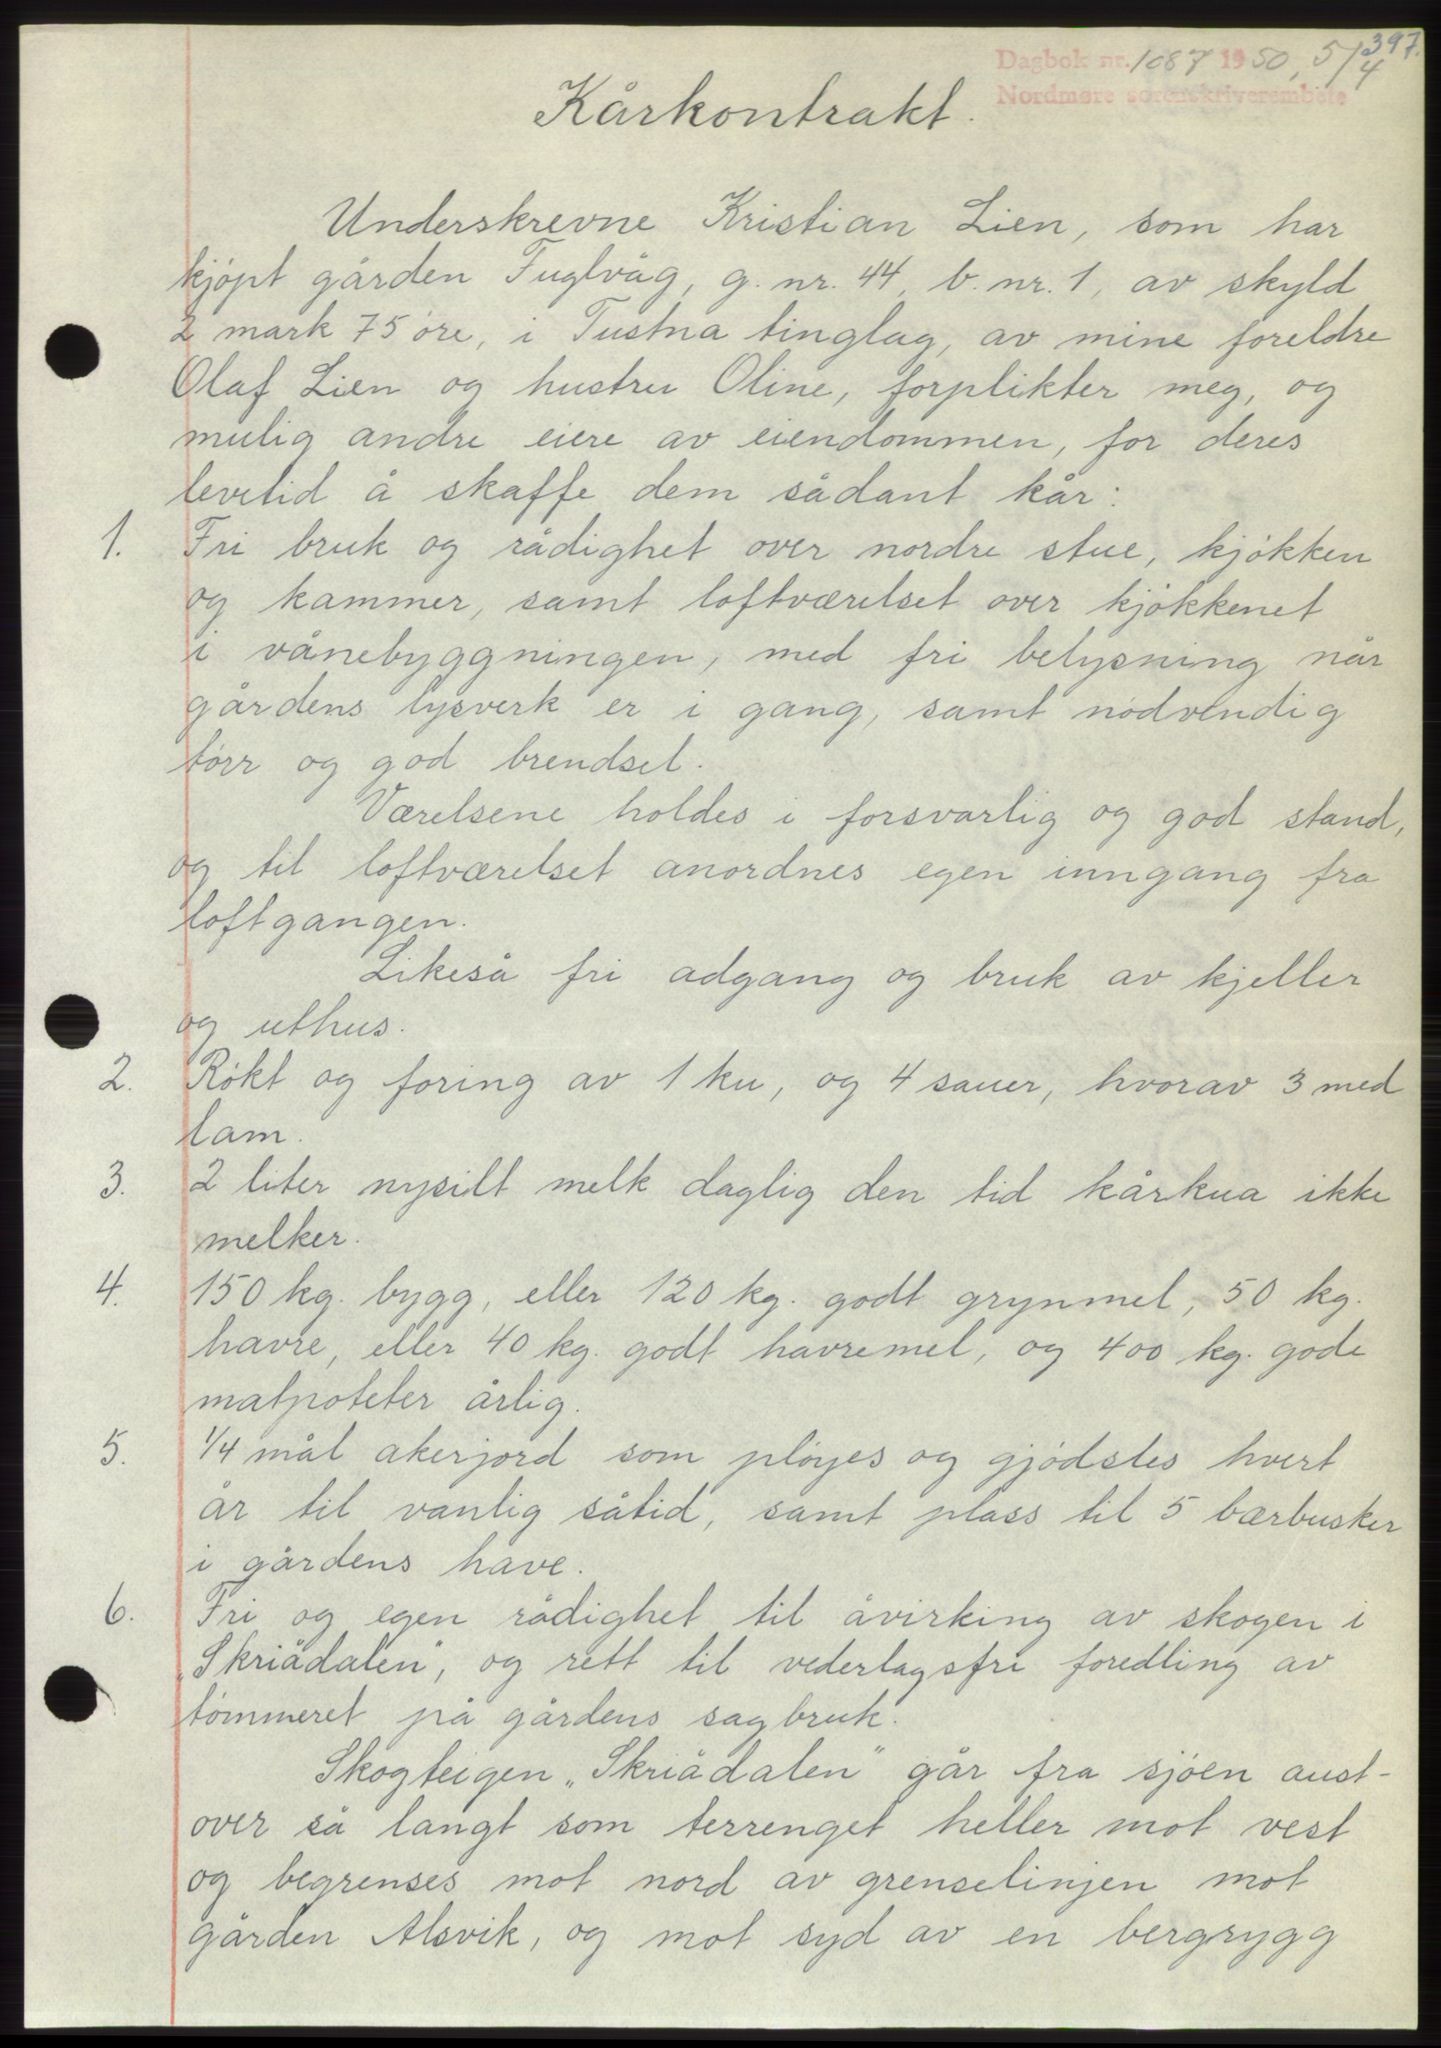 397.
Dagbok nr. 1087 1950, 5/4
Nordmøre sorenskriverembete
Kårkontrakt.
Underskrevne Kristian Lien, som har
kjøpt gården Fuglvåg, g. nr. 44, b. nr. 1, av skyld
2 mark 75 øre, i Tustna tinglag, av mine foreldre
Olaf Lien og hustru Oline, forplikter meg, og
mulig andre eiere av eiendommen, for deres
levetid å skaffe dem sådant kår:
1. Fri bruk og rådighet over nordre stue, kjøkken
og kammer, samt loftværelset over kjøkkenet
i vånebyggningen, med fri belysning når
gårdens lysverk er i gang, samt nødvendig
tørr og god brendsel.
Værelsene holdes i forsvarlig og god stand,
og til loftværelset anordnes egen inngang fra
loftgangen.
Likeså fri adgang og bruk av kjeller
og uthus.
2. Røkt og foring av 1 ku, og 4 sauer, hvorav 3 med
lam.
3. 2 liter nysilt melk daglig den tid kårkua ikke
melker.
4. 150 kg. bygg, eller 120 kg. godt grynmel, 50 kg.
havre, eller 40 kg. godt havremel, og 400 kg. gode
matpoteter årlig.
5. 1/4 mål akerjord som pløyes og gjødsles hvert
år til vanlig såtid, samt plass til 5 bærbusker
i gårdens have.
6. Fri og egen rådighet til åvirking av skogen i
„Skriådalen“, og rett til vederlagsfri foredling av
tømmeret på gårdens sagbruk.
Skogteigen „Skriådalen“ går fra sjøen aust-
over så langt som terrenget heller mot vest
og begrenses mot nord av grenselinjen mot
gården Alsvik, og mot syd av en bergrygg